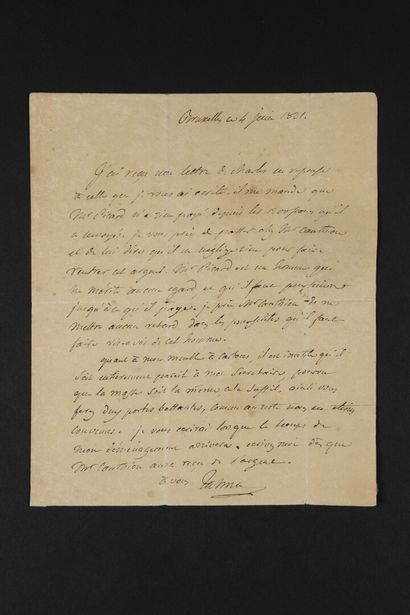 Bruxelles ce 4 juin 1821.
J'ai reçu une lettre de Charles en reponse
à celle que je vous ai ecrite. il me mande que
Mr Picard n'a rien payé depuis les qu'il
a envoyés. je vous prie de passer chez Mr Cauthion
et de lui dire qu'il ne neglige rien pour faire
rentrer cet argent. Mr Picard est un homme qui
ne mérite aucun egard et qu'il faut poursuivre
jusqu'à ce qu'il paye. je prie Mr Cauthion de ne
mettre aucun retard dans les poursuites qu'il faut
faire vis-à-vis de cet homme.
quant à mon meuble à cartons, il est inutile qu'il
soit entierement pareil à mon secretaire, pourvu
que la masse soit la même cela suffit, ainsi vous
ferez deux portes battantes, comme au reste nous en étions
convenus. je vous ecrirai lorsque le temps de
mon déménagement arrivera. ecrivez moi dès que
Mr Cauthion aura reçu de l'argent.
à vous Talma